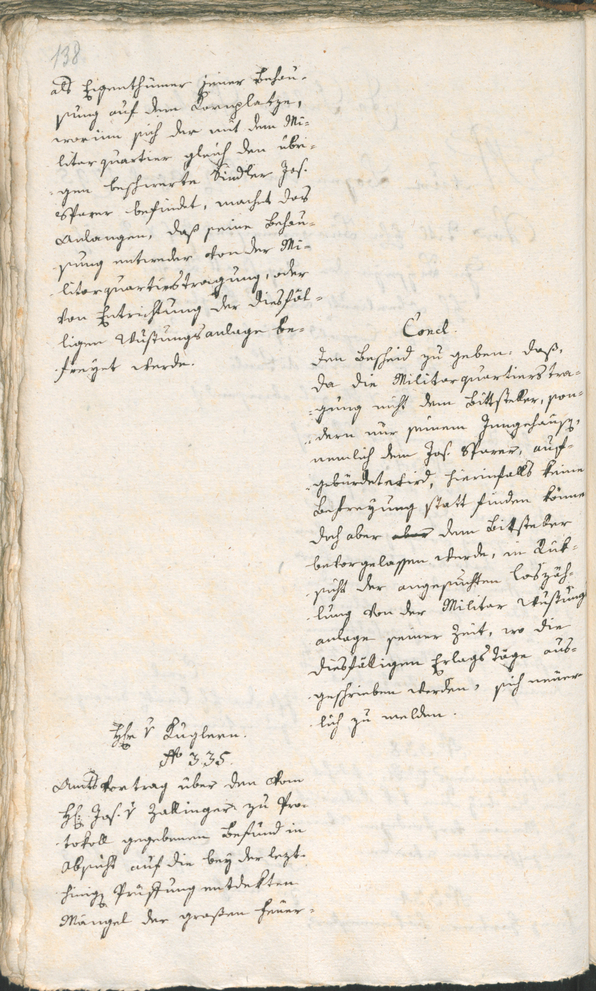 138.
als Eigenthümer seiner Behau-
sung auf dem Kornplatze,
worinn sich der mit dem Mi-
litarquartier gleich den übri-
gen beschwerte Sindler Jos.
Sparer befindet, machet das
Anlangen, daß seine Behau-
sung entweder von der Mi-
litarquartierstragung, oder
von Entrichtung der diesfäl-
ligen Wustungsanlage be-
freyet werde.
Concl.
Den Bescheid zu geben: daß,
da die Militarquartierstra-
gung nicht dem Bittsteller, son-
dern nur seinem Inngehäus,
nemlich dem Jos. Sparer, auf-
gebürdet wird, hierinfalls keine
Befreyung statt finden könne
doch aber aber dem Bittsteller
bevorgelassen werde, in Rük-
sicht der angesuchten Loszäh-
lung von der Militar Wustung
anlage seiner Zeit, wo die
diesfälligen Erlags Täge aus-
geschrieben werden, sich neuer
lich zu melden.
Hr. v Kuglern.
No 335.
Amtsvortrag über den vom
H. Jos. v Zallinger zu Pro-
tokoll gegebenen Befund in
Absicht auf die bey der lezt-
hinig Prüffung entdekten
Mängel der großen Feuer-